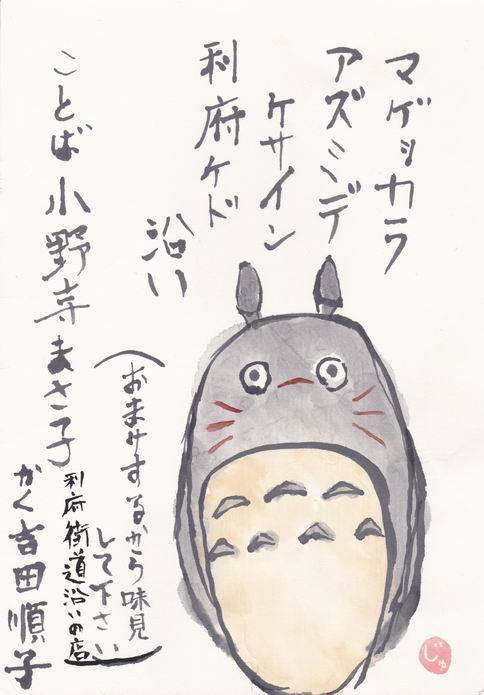 マゲッカラ
アズミデ
ケサイン
利府ケド
沿い
(おまけするから味見
して下さい)
利府街道沿いの店
ことば 小野寺まさ子
かく 吉田順子
じゅ